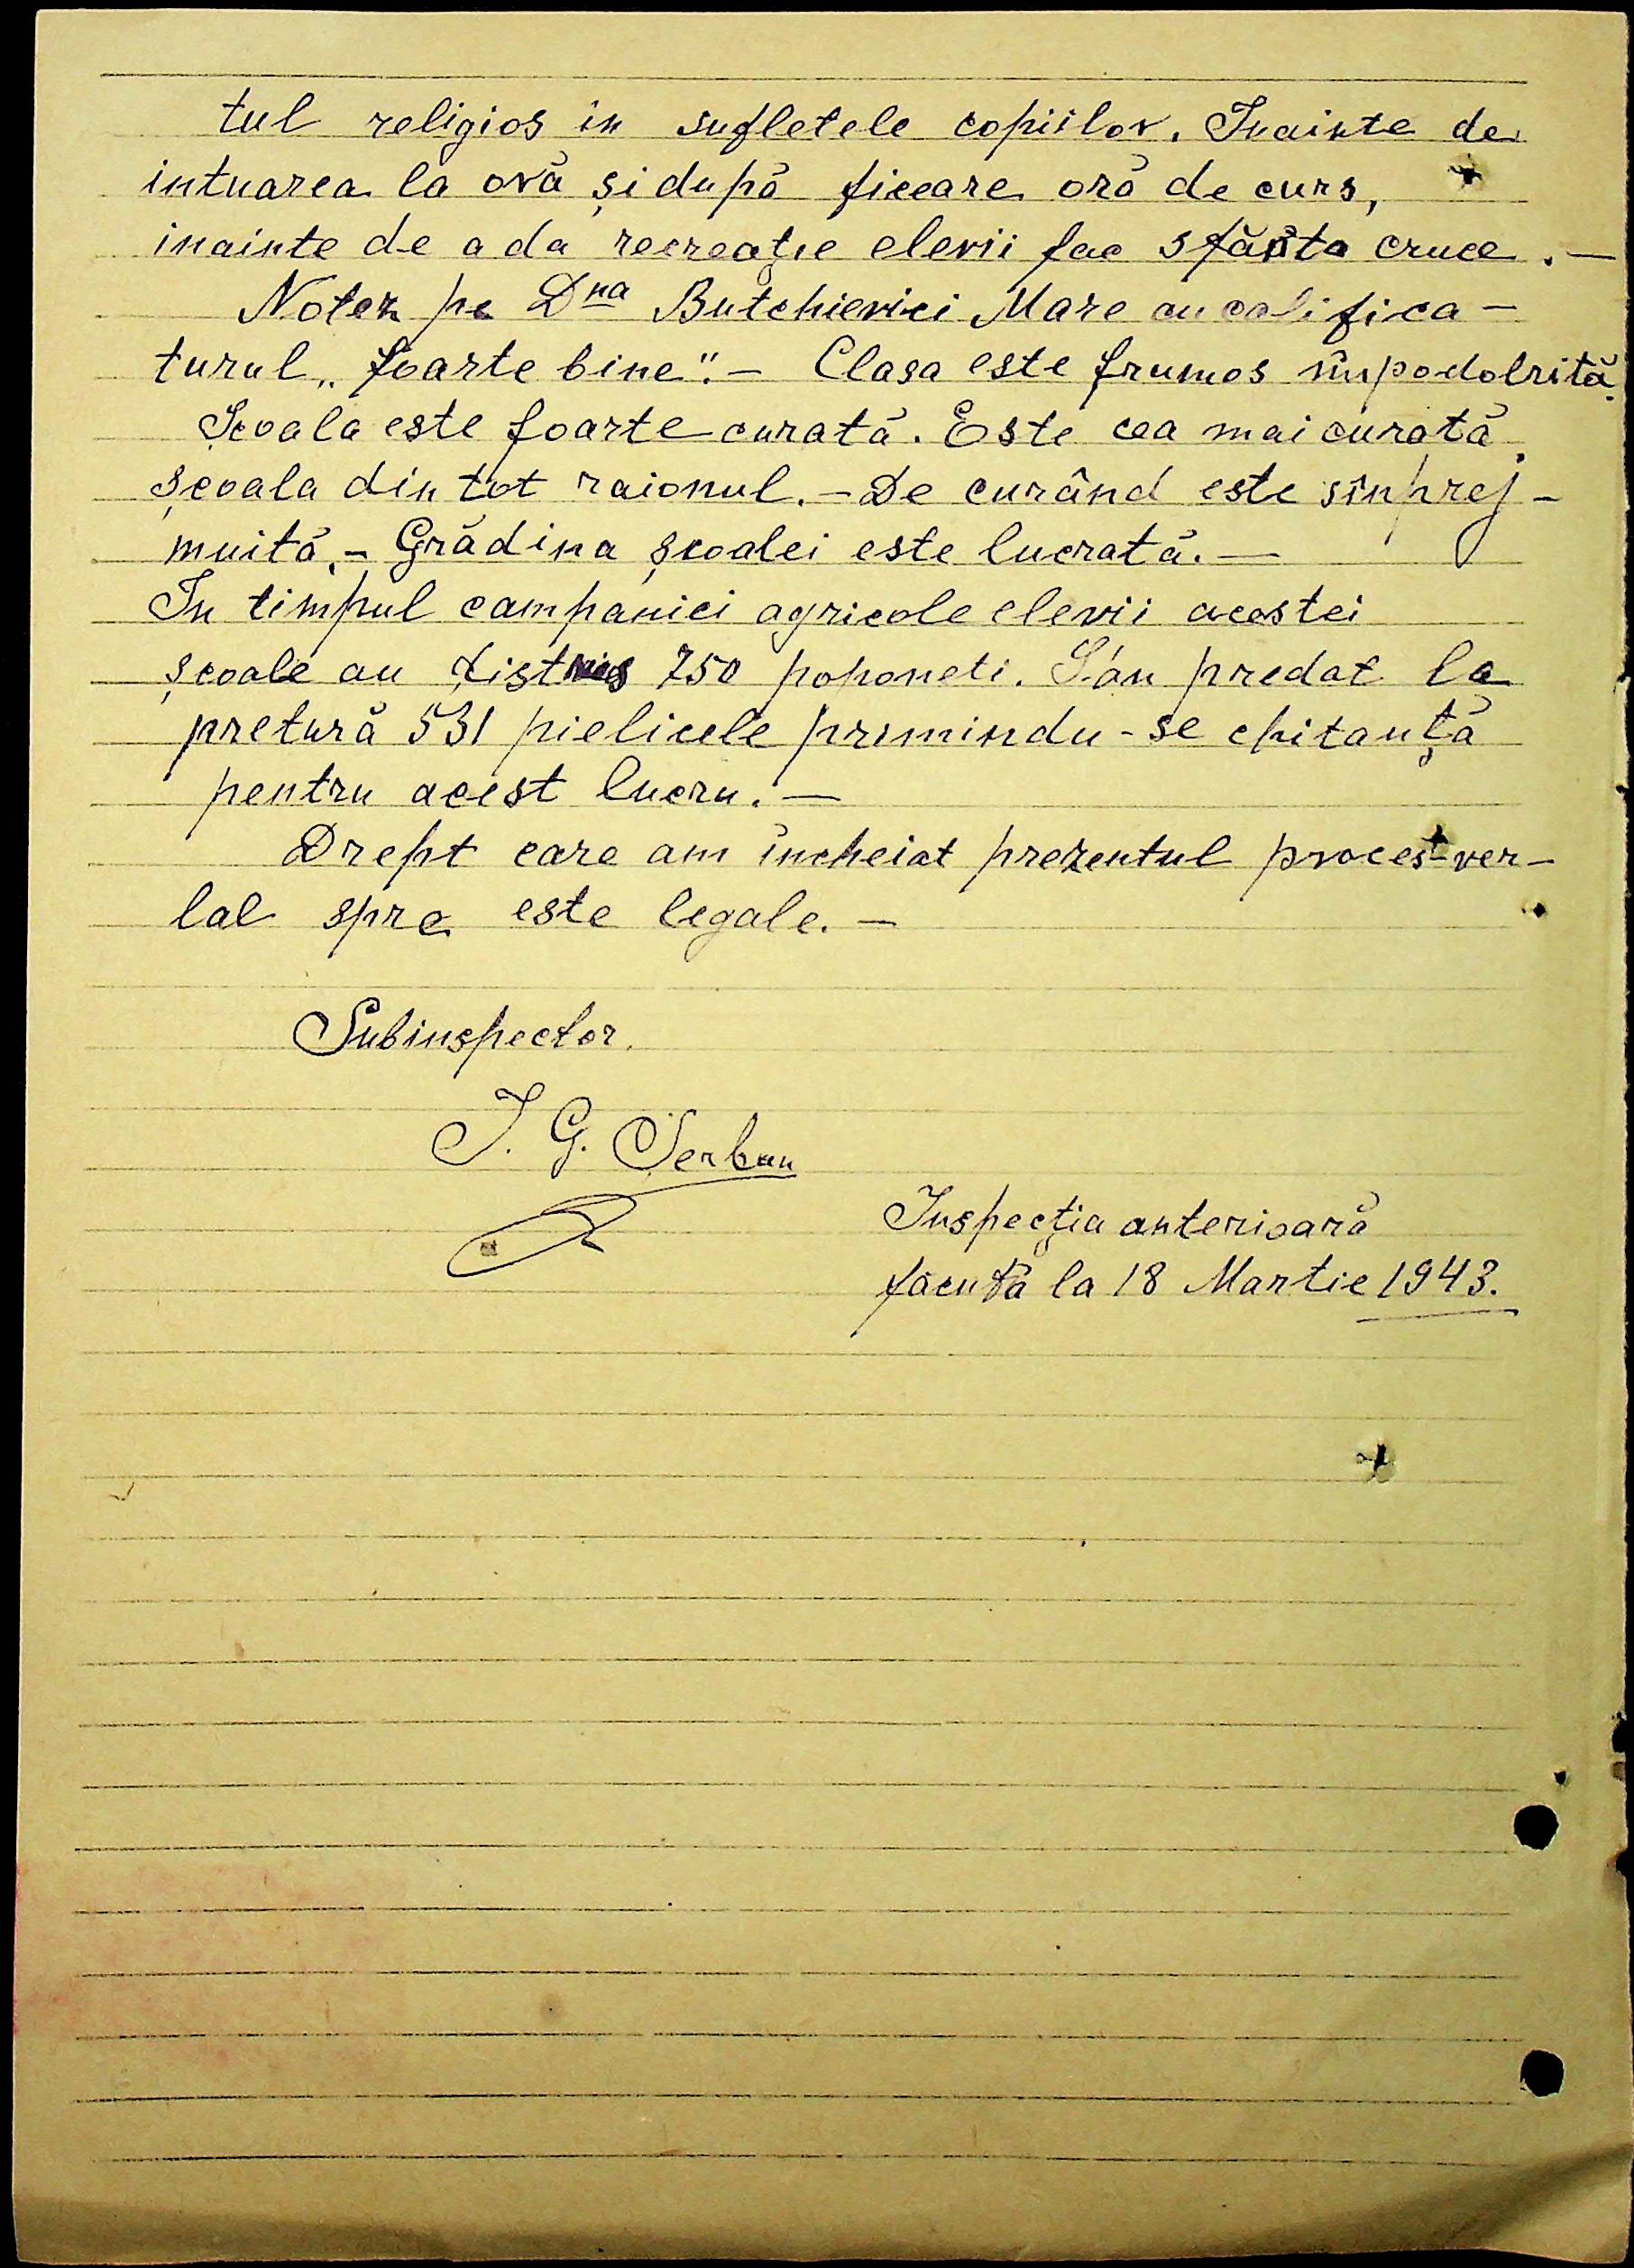 tul religios in sufletele copiilor. Inainte de
intuarea la oră și după fiecare oră de curs,
inainte de a da recreație elevii fac sfânta cruce. —
Notez pe Dna Butchievici Mare cu califica-
turul „foarte bine". — Clasa este frumos împodobită.
Școala este foarte curată. Este cea mai curată
școala din tot raionul. — De curând este împrej-
muită. — Grădina școalei este lucrată. —
In timpul campaniei agricole elevii acestei
școale au distrus 750 popo neti. S'au predat la
pretură 531 pielicele primindu-se chitanță
pentru acest lucru. —
Drept care am încheiat prezentul proces-ver-
bal spre este legale. —
Subinspector.
I. G. Șerban
Inspecția anterioară
făcută la 18 Martie 1943.